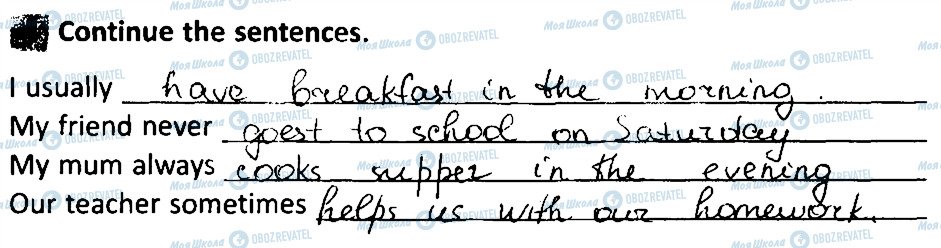 Continue the sentences.
I usually have breakfast in the morning.
My friend never goest to school on Saturday
My mum always cooks supper in the evening
Our teacher sometimes helps us with our homework.
МояШкола OBOZREVATEL